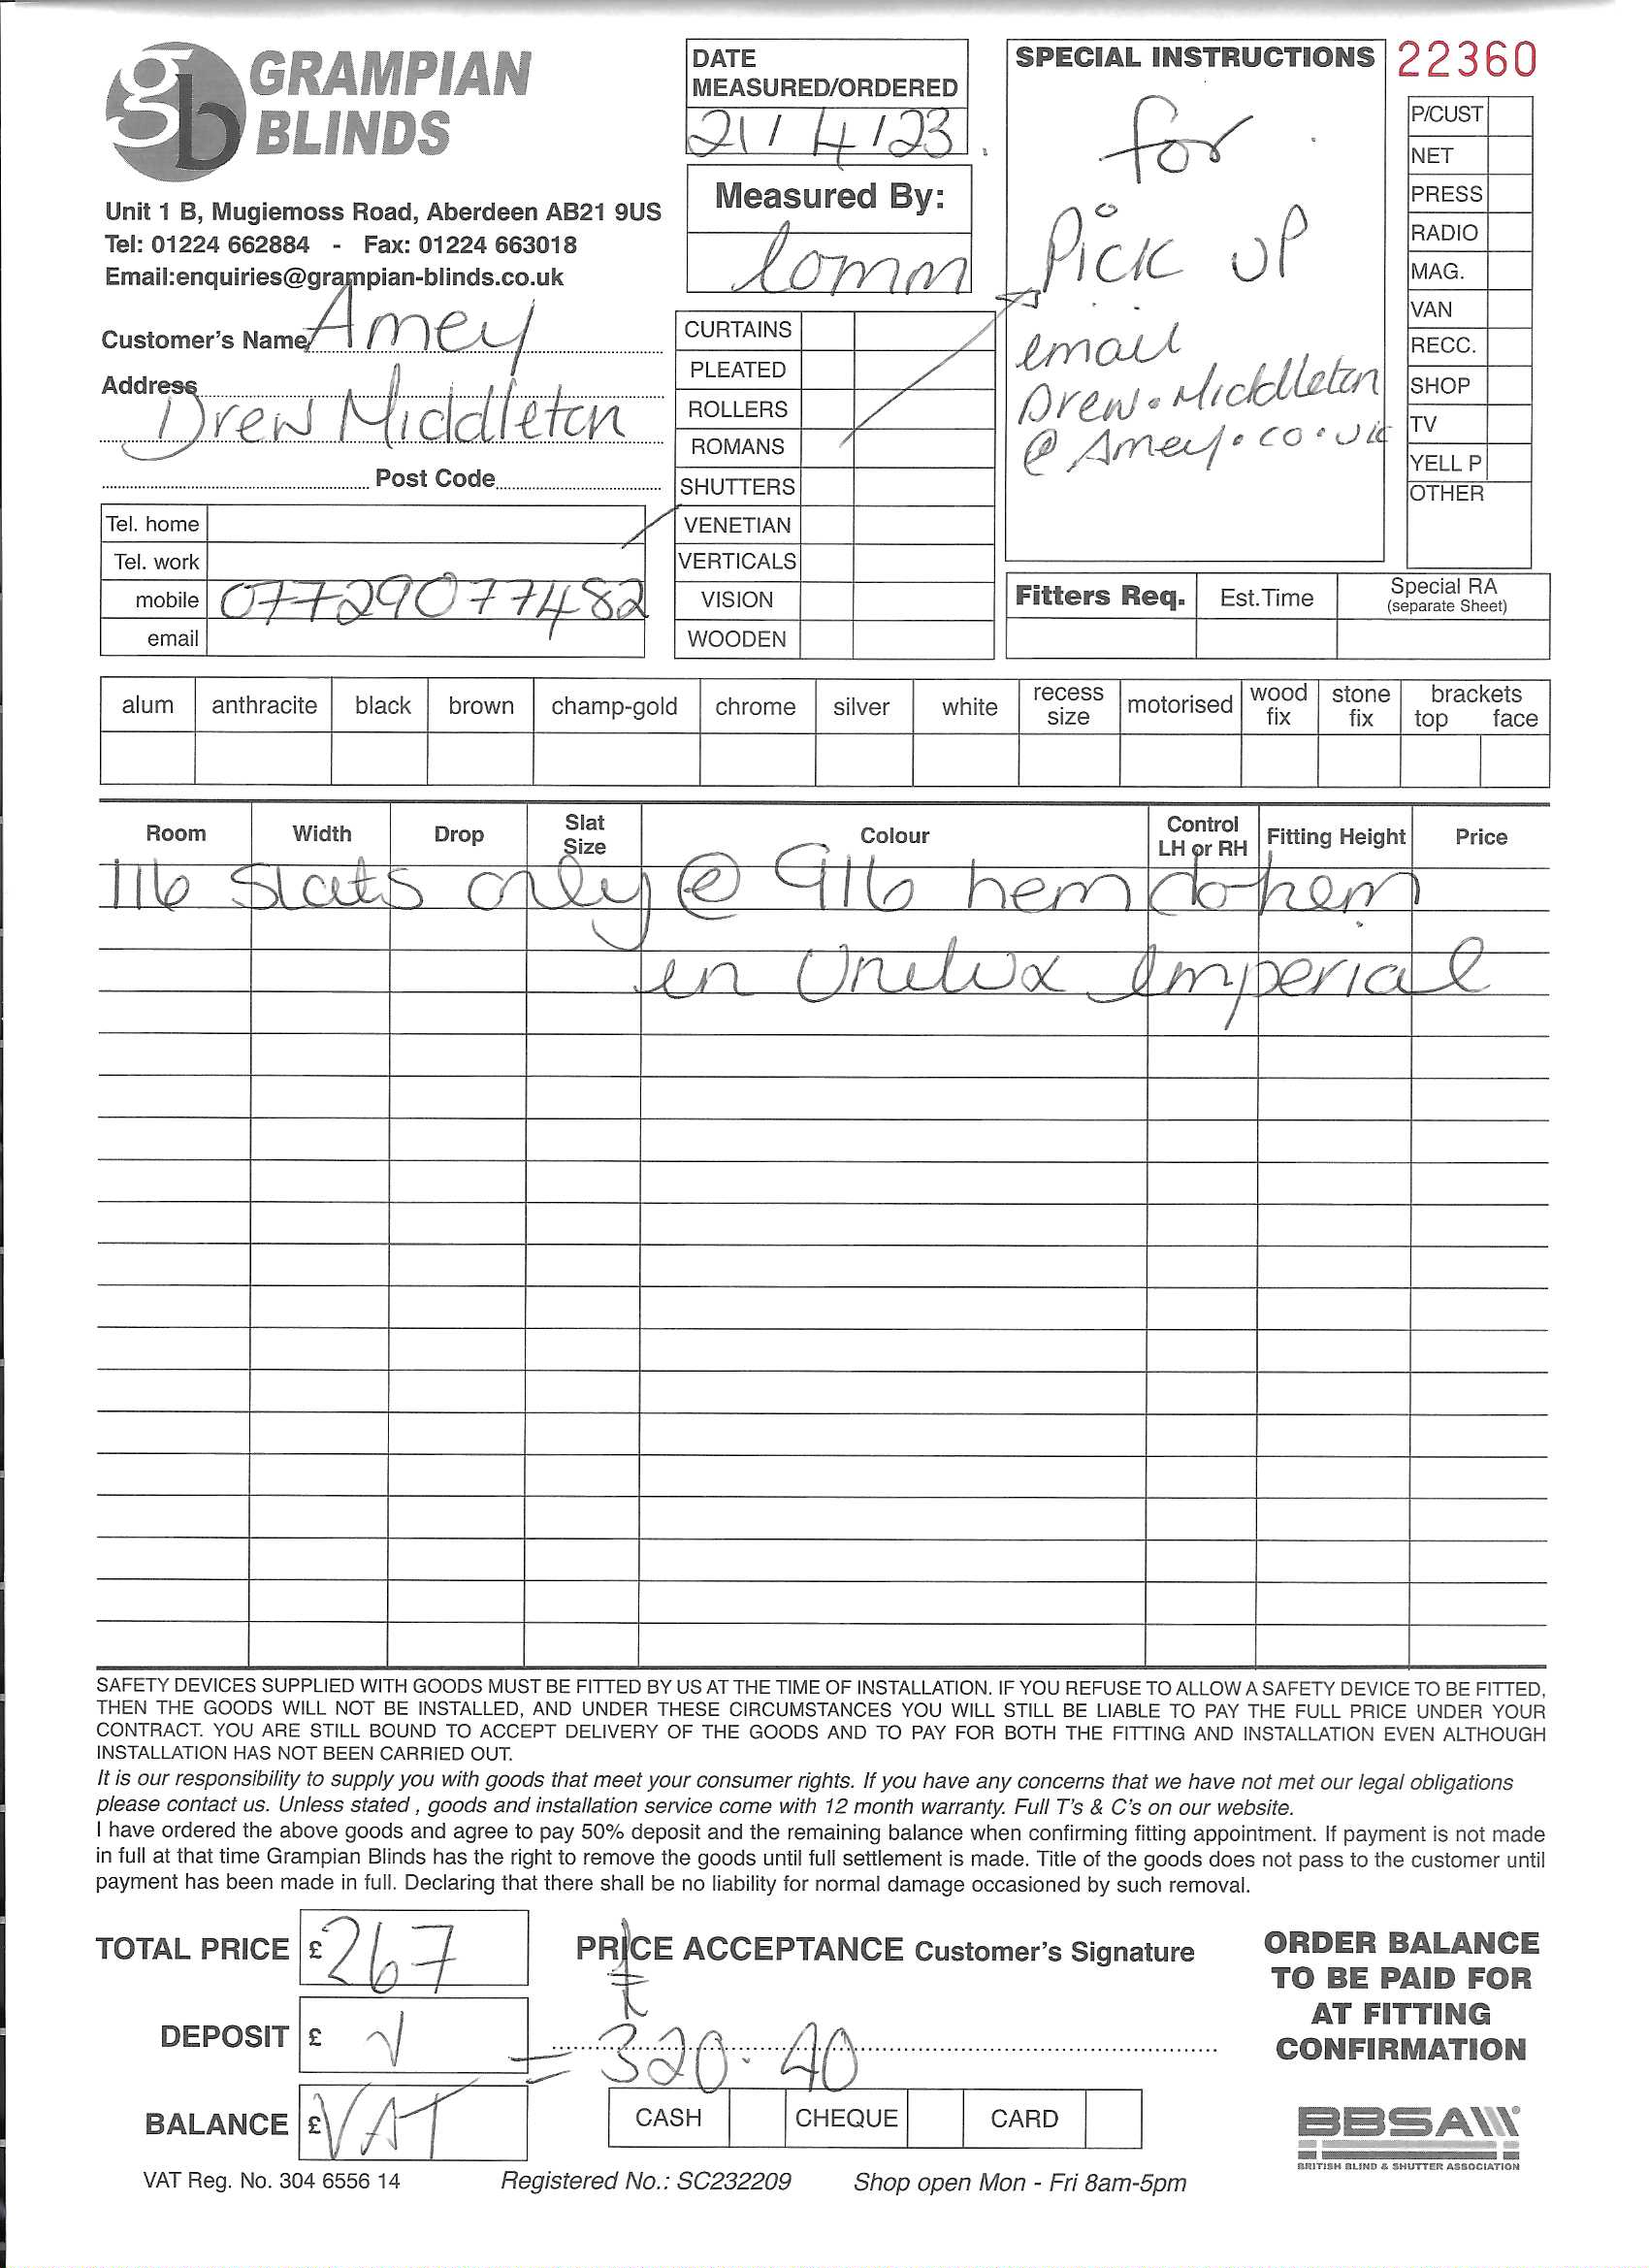 gb GRAMPIAN BLINDS
Unit 1 B, Mugiemoss Road, Aberdeen AB21 9US
Tel: 01224 662884 - Fax: 01224 663018
Email:enquiries@grampian-blinds.co.uk
Customer's Name Amey
Address
Drew Middleton
Post Code
Tel. home
Tel. work
mobile 07729077482
email
DATE
MEASURED/ORDERED
21/4/23
Measured By:
Comm
CURTAINS
PLEATED
ROLLERS
ROMANS
SHUTTERS
VENETIAN
VERTICALS
VISION
WOODEN
SPECIAL INSTRUCTIONS
for
Pick up
email
Drew.Middleton
@Amey.co.uk
22360
P/CUST
NET
PRESS
RADIO
MAG.
VAN
RECC.
SHOP
TV
YELL P
OTHER
Fitters Req. Est.Time Special RA
(separate Sheet)
alum anthracite black brown champ-gold chrome silver white recess size motorised wood fix stone fix brackets top face
Room Width Drop Slat Size Colour Control LH or RH Fitting Height Price
116 Slats only @ 916 hem to hem
in Unilux Imperial
SAFETY DEVICES SUPPLIED WITH GOODS MUST BE FITTED BY US AT THE TIME OF INSTALLATION. IF YOU REFUSE TO ALLOW A SAFETY DEVICE TO BE FITTED,
THEN THE GOODS WILL NOT BE INSTALLED, AND UNDER THESE CIRCUMSTANCES YOU WILL STILL BE LIABLE TO PAY THE FULL PRICE UNDER YOUR
CONTRACT. YOU ARE STILL BOUND TO ACCEPT DELIVERY OF THE GOODS AND TO PAY FOR BOTH THE FITTING AND INSTALLATION EVEN ALTHOUGH
INSTALLATION HAS NOT BEEN CARRIED OUT.
It is our responsibility to supply you with goods that meet your consumer rights. If you have any concerns that we have not met our legal obligations
please contact us. Unless stated , goods and installation service come with 12 month warranty. Full T's & C's on our website.
I have ordered the above goods and agree to pay 50% deposit and the remaining balance when confirming fitting appointment. If payment is not made
in full at that time Grampian Blinds has the right to remove the goods until full settlement is made. Title of the goods does not pass to the customer until
payment has been made in full. Declaring that there shall be no liability for normal damage occasioned by such removal.
TOTAL PRICE £ 267
DEPOSIT £ √
BALANCE £ VAT = 320.40
PRICE ACCEPTANCE Customer's Signature
CASH CHEQUE CARD
ORDER BALANCE
TO BE PAID FOR
AT FITTING
CONFIRMATION
BBSA
BRITISH BLIND & SHUTTER ASSOCIATION
VAT Reg. No. 304 6556 14 Registered No.: SC232209 Shop open Mon - Fri 8am-5pm